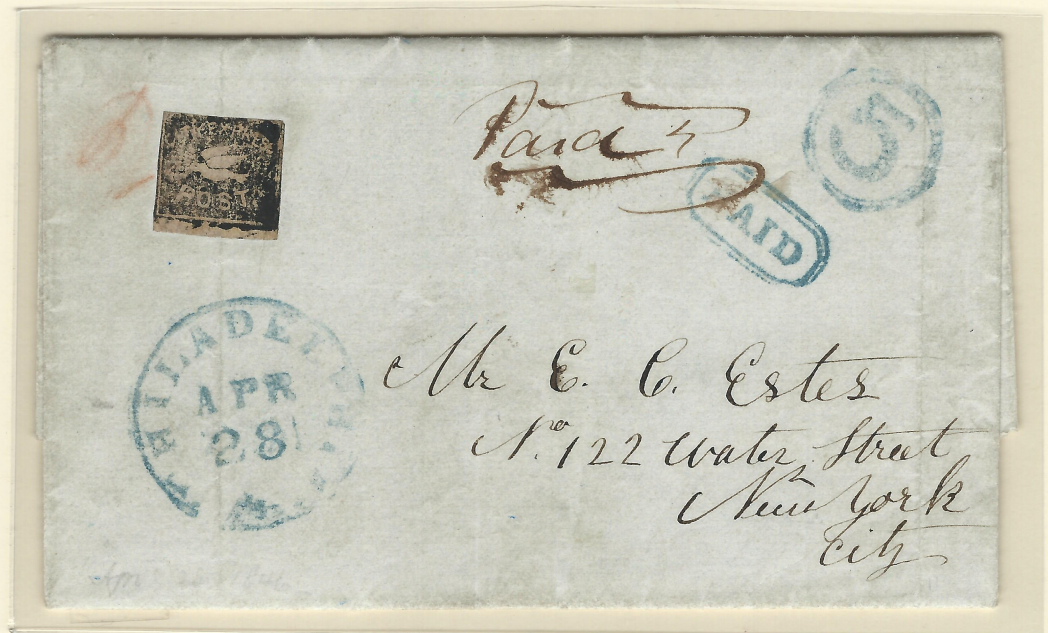 Paid 5
5
PAID
POST
PHILADELPHIA
APR
28
Mr E. C. Estes
No. 122 Water Street
New York
City